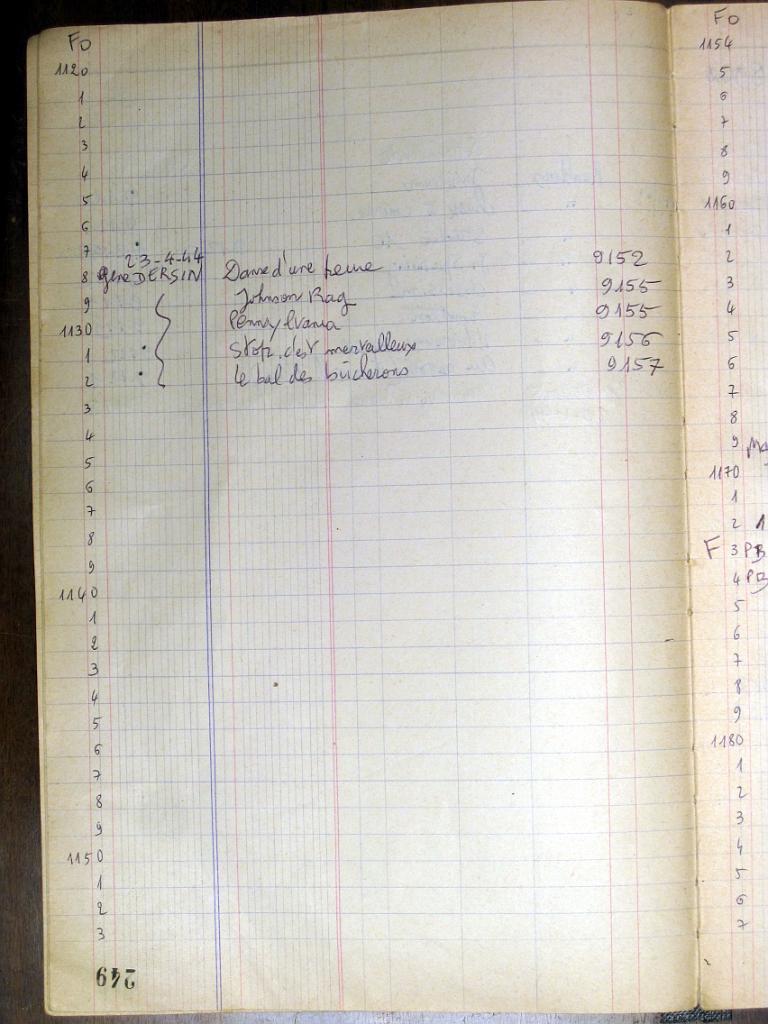 Fo
1120
1
2
3
4
5
6
7 23-4-44
8 Gene DERSIN Dans d'une heure 9152
9 Johnson Rag 9155
1130 Pennsylvania 9155
1 Stop, c'est merveilleux 9156
2 Le bal des bûcherons 9157
3
4
5
6
7
8
9
1140
1
2
3
4
5
6
7
8
9
1150
1
2
3
249
Fo
1154
5
6
7
8
9
1160
1
2
3
4
5
6
7
8
9 Ma
1170
1
2 1
F 3 PB
4 PB
5
6
7
8
9
1180
1
2
3
4
5
6
7